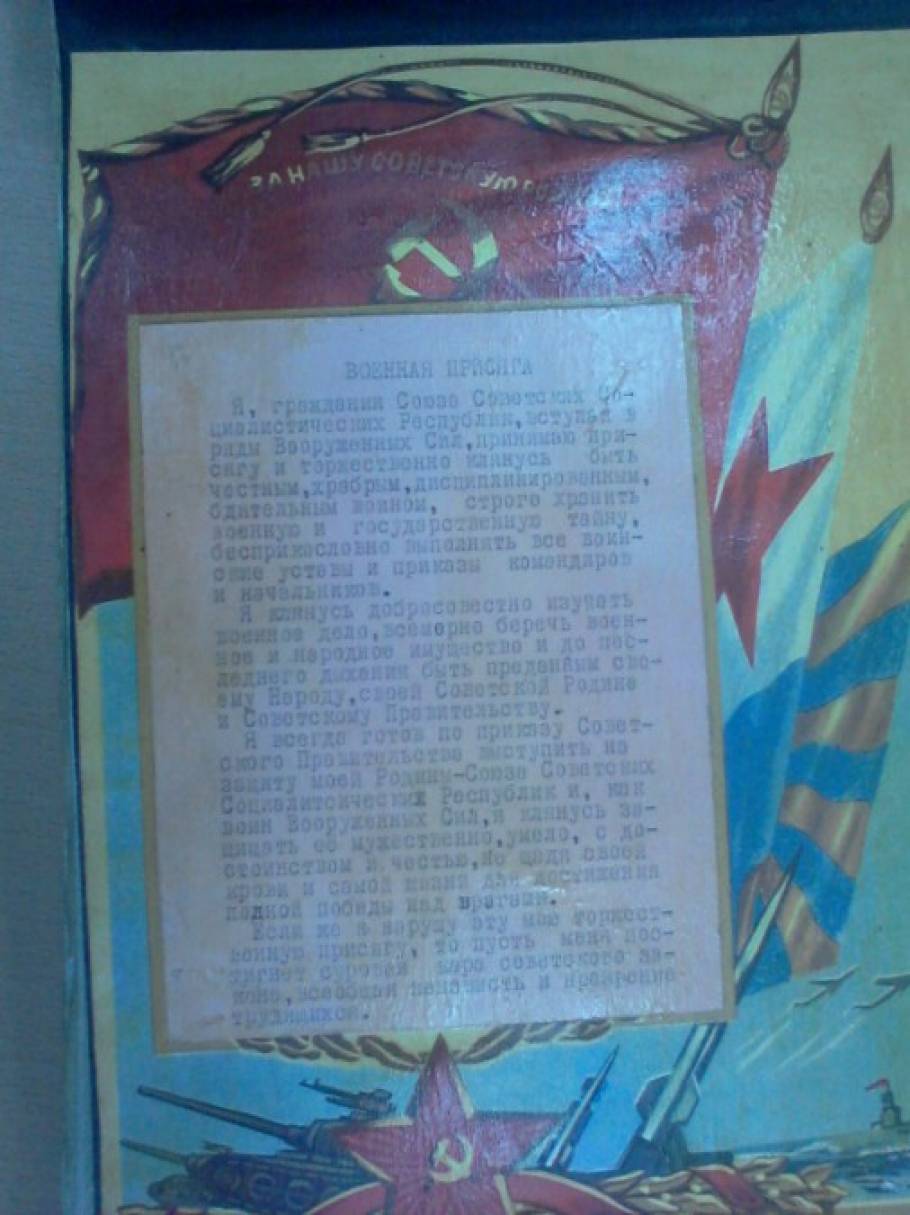 ЗА НАШУ СОВЕТСКУЮ
ВОЕННАЯ ПРИСЯГА
Я, гражданин Союза Советских Со-
циалистических Республик,вступая в
ряды Вооруженных Сил,принимаю при-
сягу и торжественно клянусь быть
честным,храбрым,дисциплинированным,
бдительным воином, строго хранить
военную и государственную тайну,
бесприкословно выполнять все воин-
ские уставы и приказы командиров
и начальников.
Я клянусь добросовестно изучать
военное дело,всемерно беречь воен-
ное и народное имущество и до пос-
леднего дыхания быть преданным сво-
ему Народу,своей Советской Родине
и Советскому Правительству.
Я всегда готов по приказу Совет-
ского Правительства выступить на
защиту моей Родины-Союза Советских
Социалитсических Республик и, как
воин Вооруженных Сил,я клянусь за-
щищать её мужественно,умело, с до-
стоинством и честью,не щадя своей
крови и самой жизни для достижения
полной победы над врагами.
Если же я нарушу эту мою торжест-
венную присягу, то пусть меня пос-
тигнет суровая кара советского за-
кона,всеобщая ненависть и презрение
трудящихся.